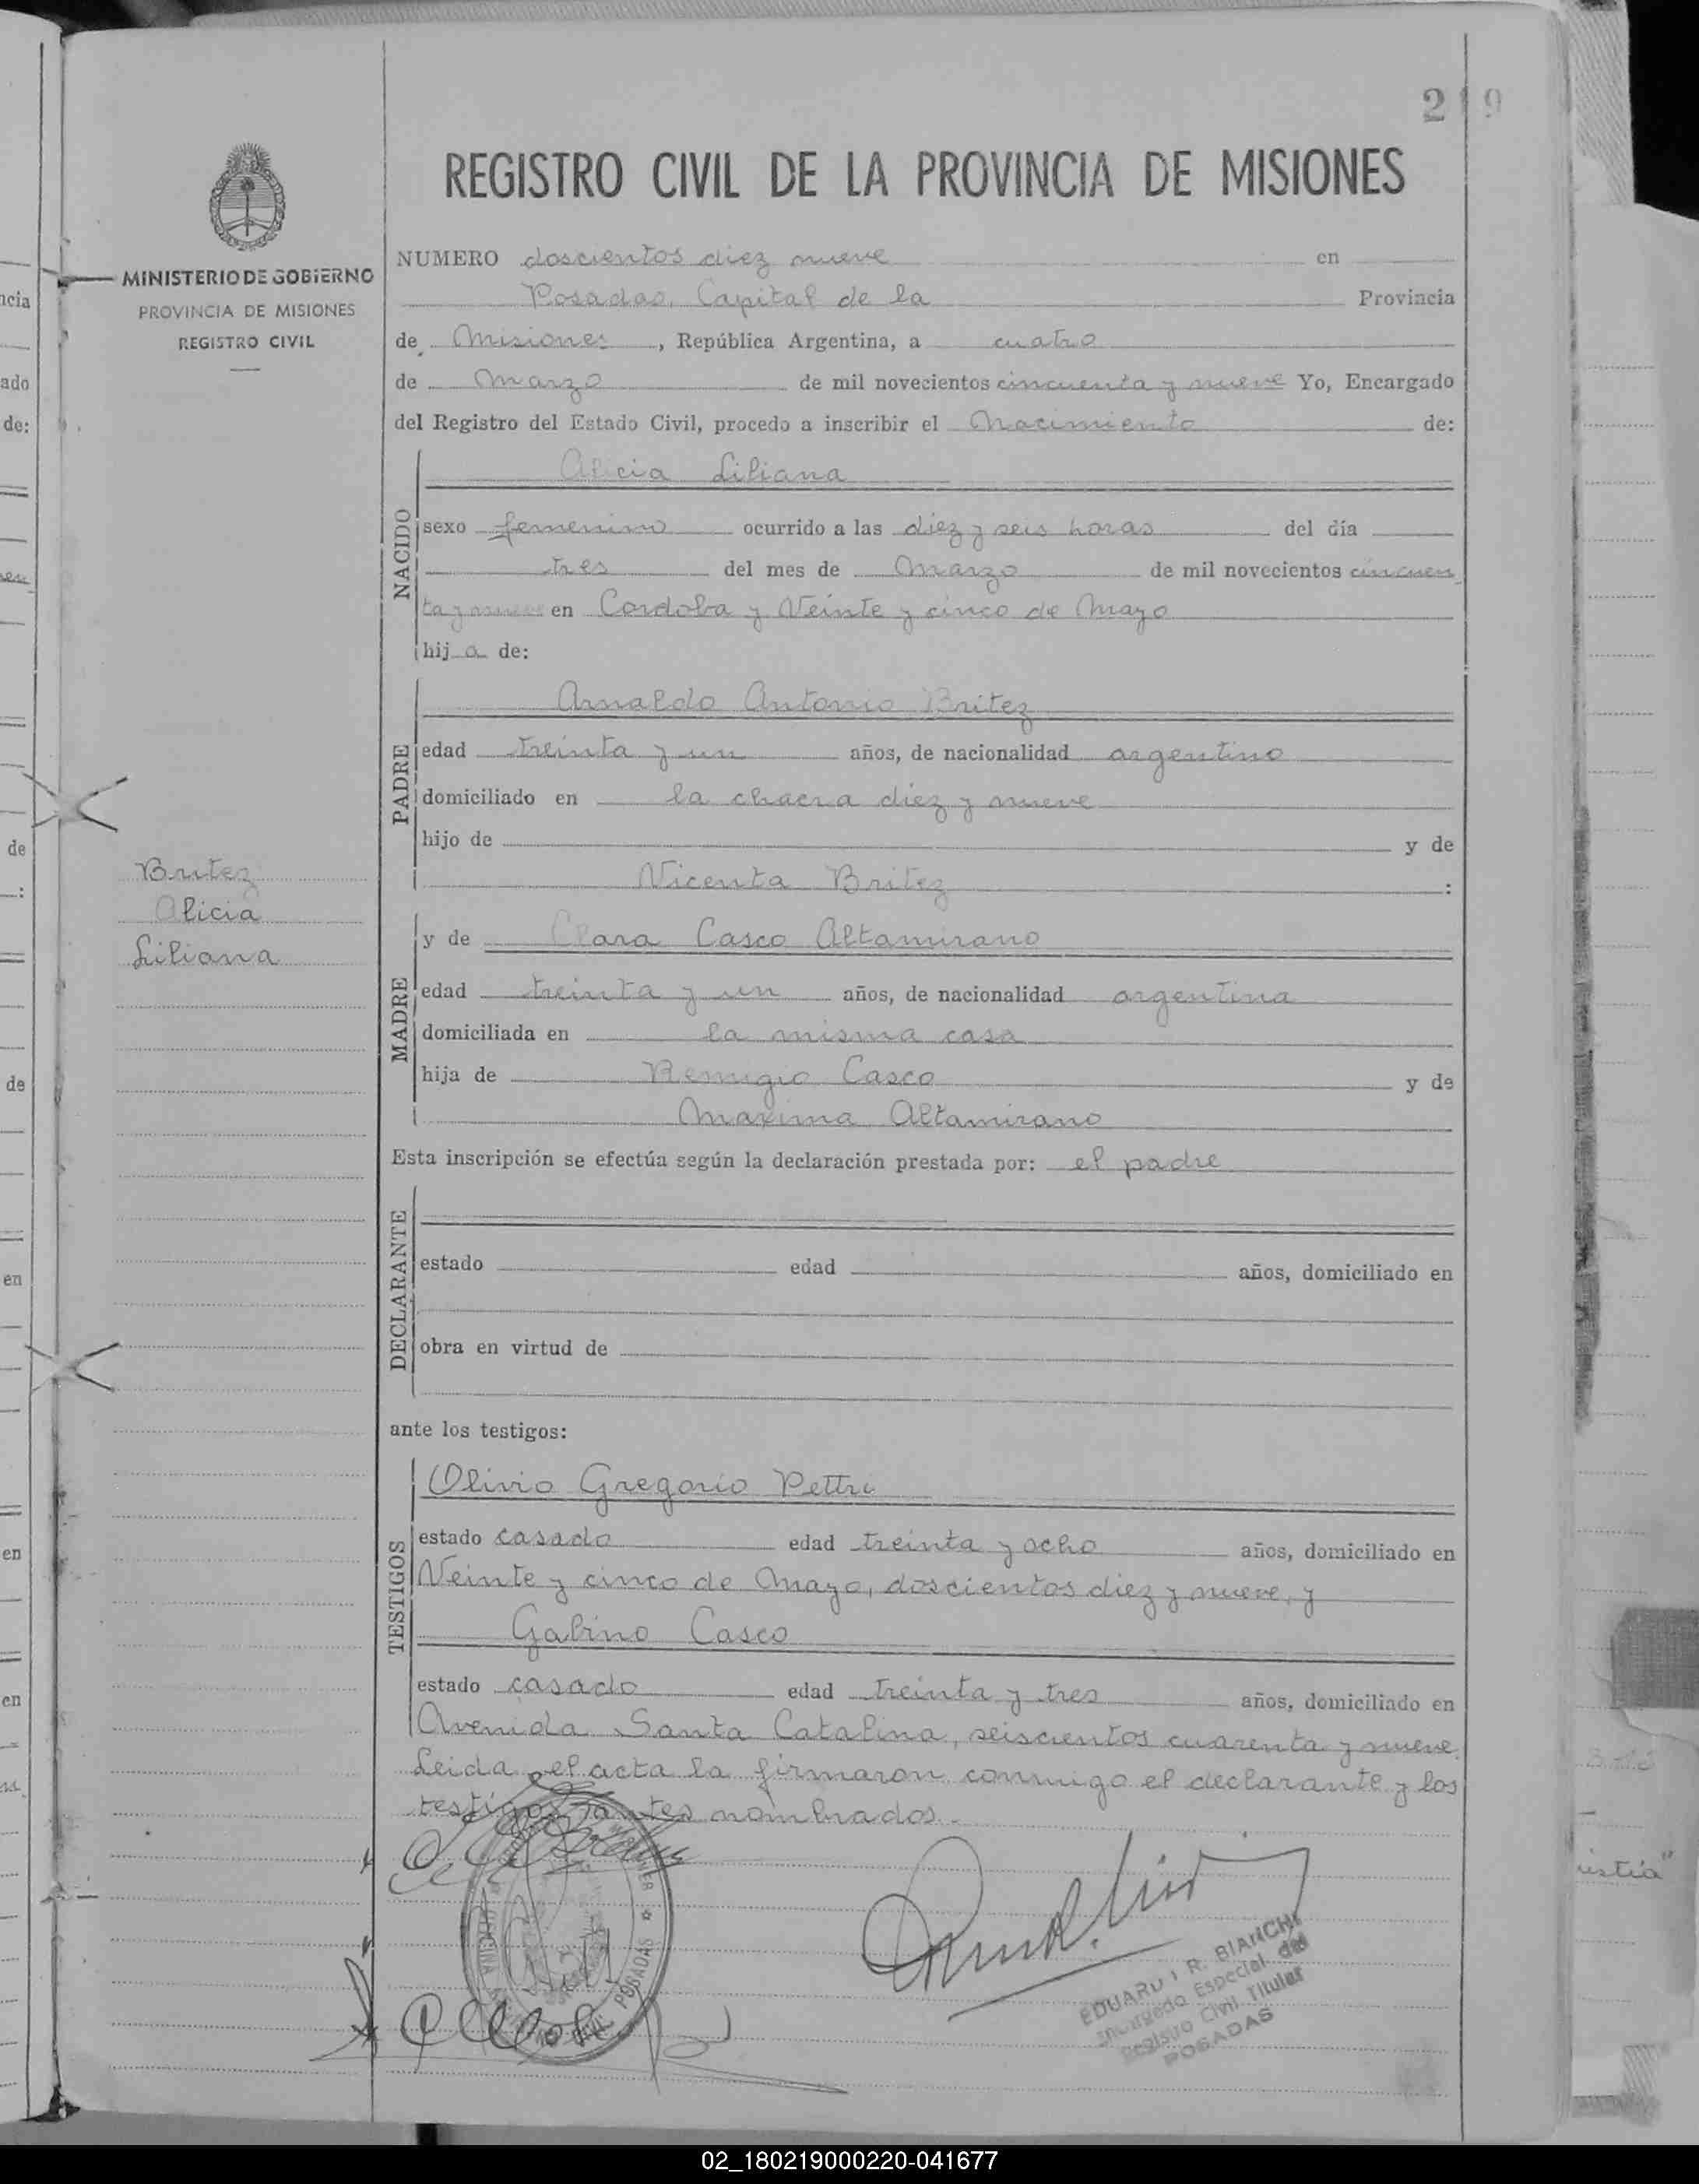 219
REGISTRO CIVIL DE LA PROVINCIA DE MISIONES
MINISTERIO DE GOBIERNO
PROVINCIA DE MISIONES
REGISTRO CIVIL
NUMERO doscientos diez nueve en
Posadas, Capital de la Provincia
de Misiones, República Argentina, a cuatro
de Marzo de mil novecientos cincuenta y nueve Yo, Encargado
del Registro del Estado Civil, procedo a inscribir el Nacimiento de:
NACIDO
Alicia Liliana
sexo femenino ocurrido a las diez y seis horas del día
tres del mes de Marzo de mil novecientos cincuen
ta y nueve en Cordoba y Veinte y cinco de Mayo
hija de:
PADRE
Arnaldo Antonio Britez
edad treinta y un años, de nacionalidad argentino
domiciliado en la chacra diez y nueve
hijo de y de
Vicenta Britez :
Britez
Alicia
Liliana
MADRE
y de Clara Casco Altamirano
edad treinta y un años, de nacionalidad argentina
domiciliada en la misma casa
hija de Remigio Casco y de
Maxima Altamirano
Esta inscripción se efectúa según la declaración prestada por: el padre
DECLARANTE
estado edad años, domiciliado en
obra en virtud de
ante los testigos:
TESTIGOS
Olivio Gregorio Pettri
estado casado edad treinta y ocho años, domiciliado en
Veinte y cinco de Mayo, doscientos diez y nueve, y
Gabino Casco
estado casado edad treinta y tres años, domiciliado en
Avenida Santa Catalina, seiscientos cuarenta y nueve.
Leida el acta la firmaron conmigo el declarante y los
testigos antes nombrados.-
POSADAS
EDUARDO R. BIANCHI
Encargado Especial del
Registro Civil Titular
POSADAS
02_180219000220-041677